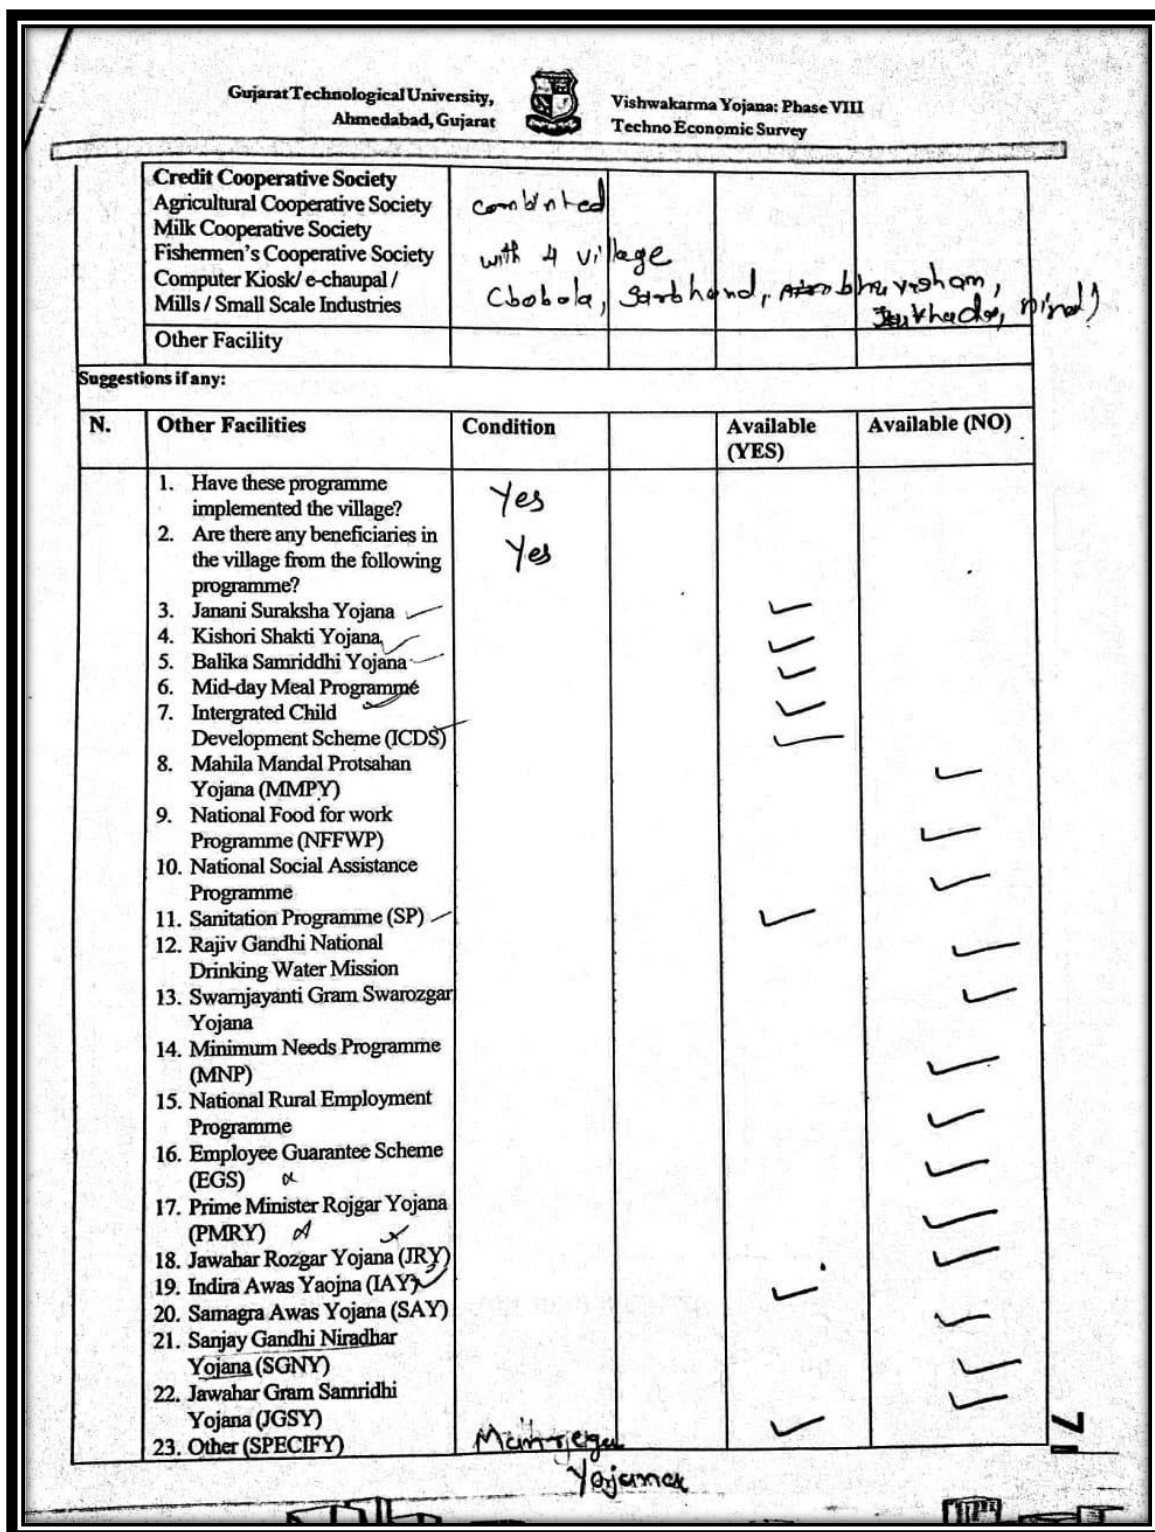 Gujarat Technological University,
Ahmedabad, Gujarat
Vishwakarma Yojana: Phase VIII
Techno Economic Survey
Credit Cooperative Society
Agricultural Cooperative Society
Milk Cooperative Society
Fishermen's Cooperative Society
Computer Kiosk/ e-chaupal /
Mills / Small Scale Industries
with 4 village
Other Facility
Suggestions if any:
N. Other Facilities Condition Available (YES) Available (NO)
1. Have these programme
implemented the village? Yes
2. Are there any beneficiaries in
the village from the following Yes
programme?
3. Janani Suraksha Yojana ✓
4. Kishori Shakti Yojana ✓
5. Balika Samriddhi Yojana ✓
6. Mid-day Meal Programme ✓
7. Intergrated Child
Development Scheme (ICDS) ✓
8. Mahila Mandal Protsahan ✓
Yojana (MMPY)
9. National Food for work
Programme (NFFWP) ✓
10. National Social Assistance
Programme ✓
11. Sanitation Programme (SP) ✓
12. Rajiv Gandhi National ✓
Drinking Water Mission
13. Swarnjayanti Gram Swarozgar ✓
Yojana
14. Minimum Needs Programme
(MNP) ✓
15. National Rural Employment
Programme ✓
16. Employee Guarantee Scheme
(EGS) ✓
17. Prime Minister Rojgar Yojana
(PMRY) ✓
18. Jawahar Rozgar Yojana (JRY) ✓
19. Indira Awas Yaojna (IAY) ✓
20. Samagra Awas Yojana (SAY) ✓
21. Sanjay Gandhi Niradhar
Yojana (SGNY) ✓
22. Jawahar Gram Samridhi
Yojana (JGSY) ✓
23. Other (SPECIFY) ✓